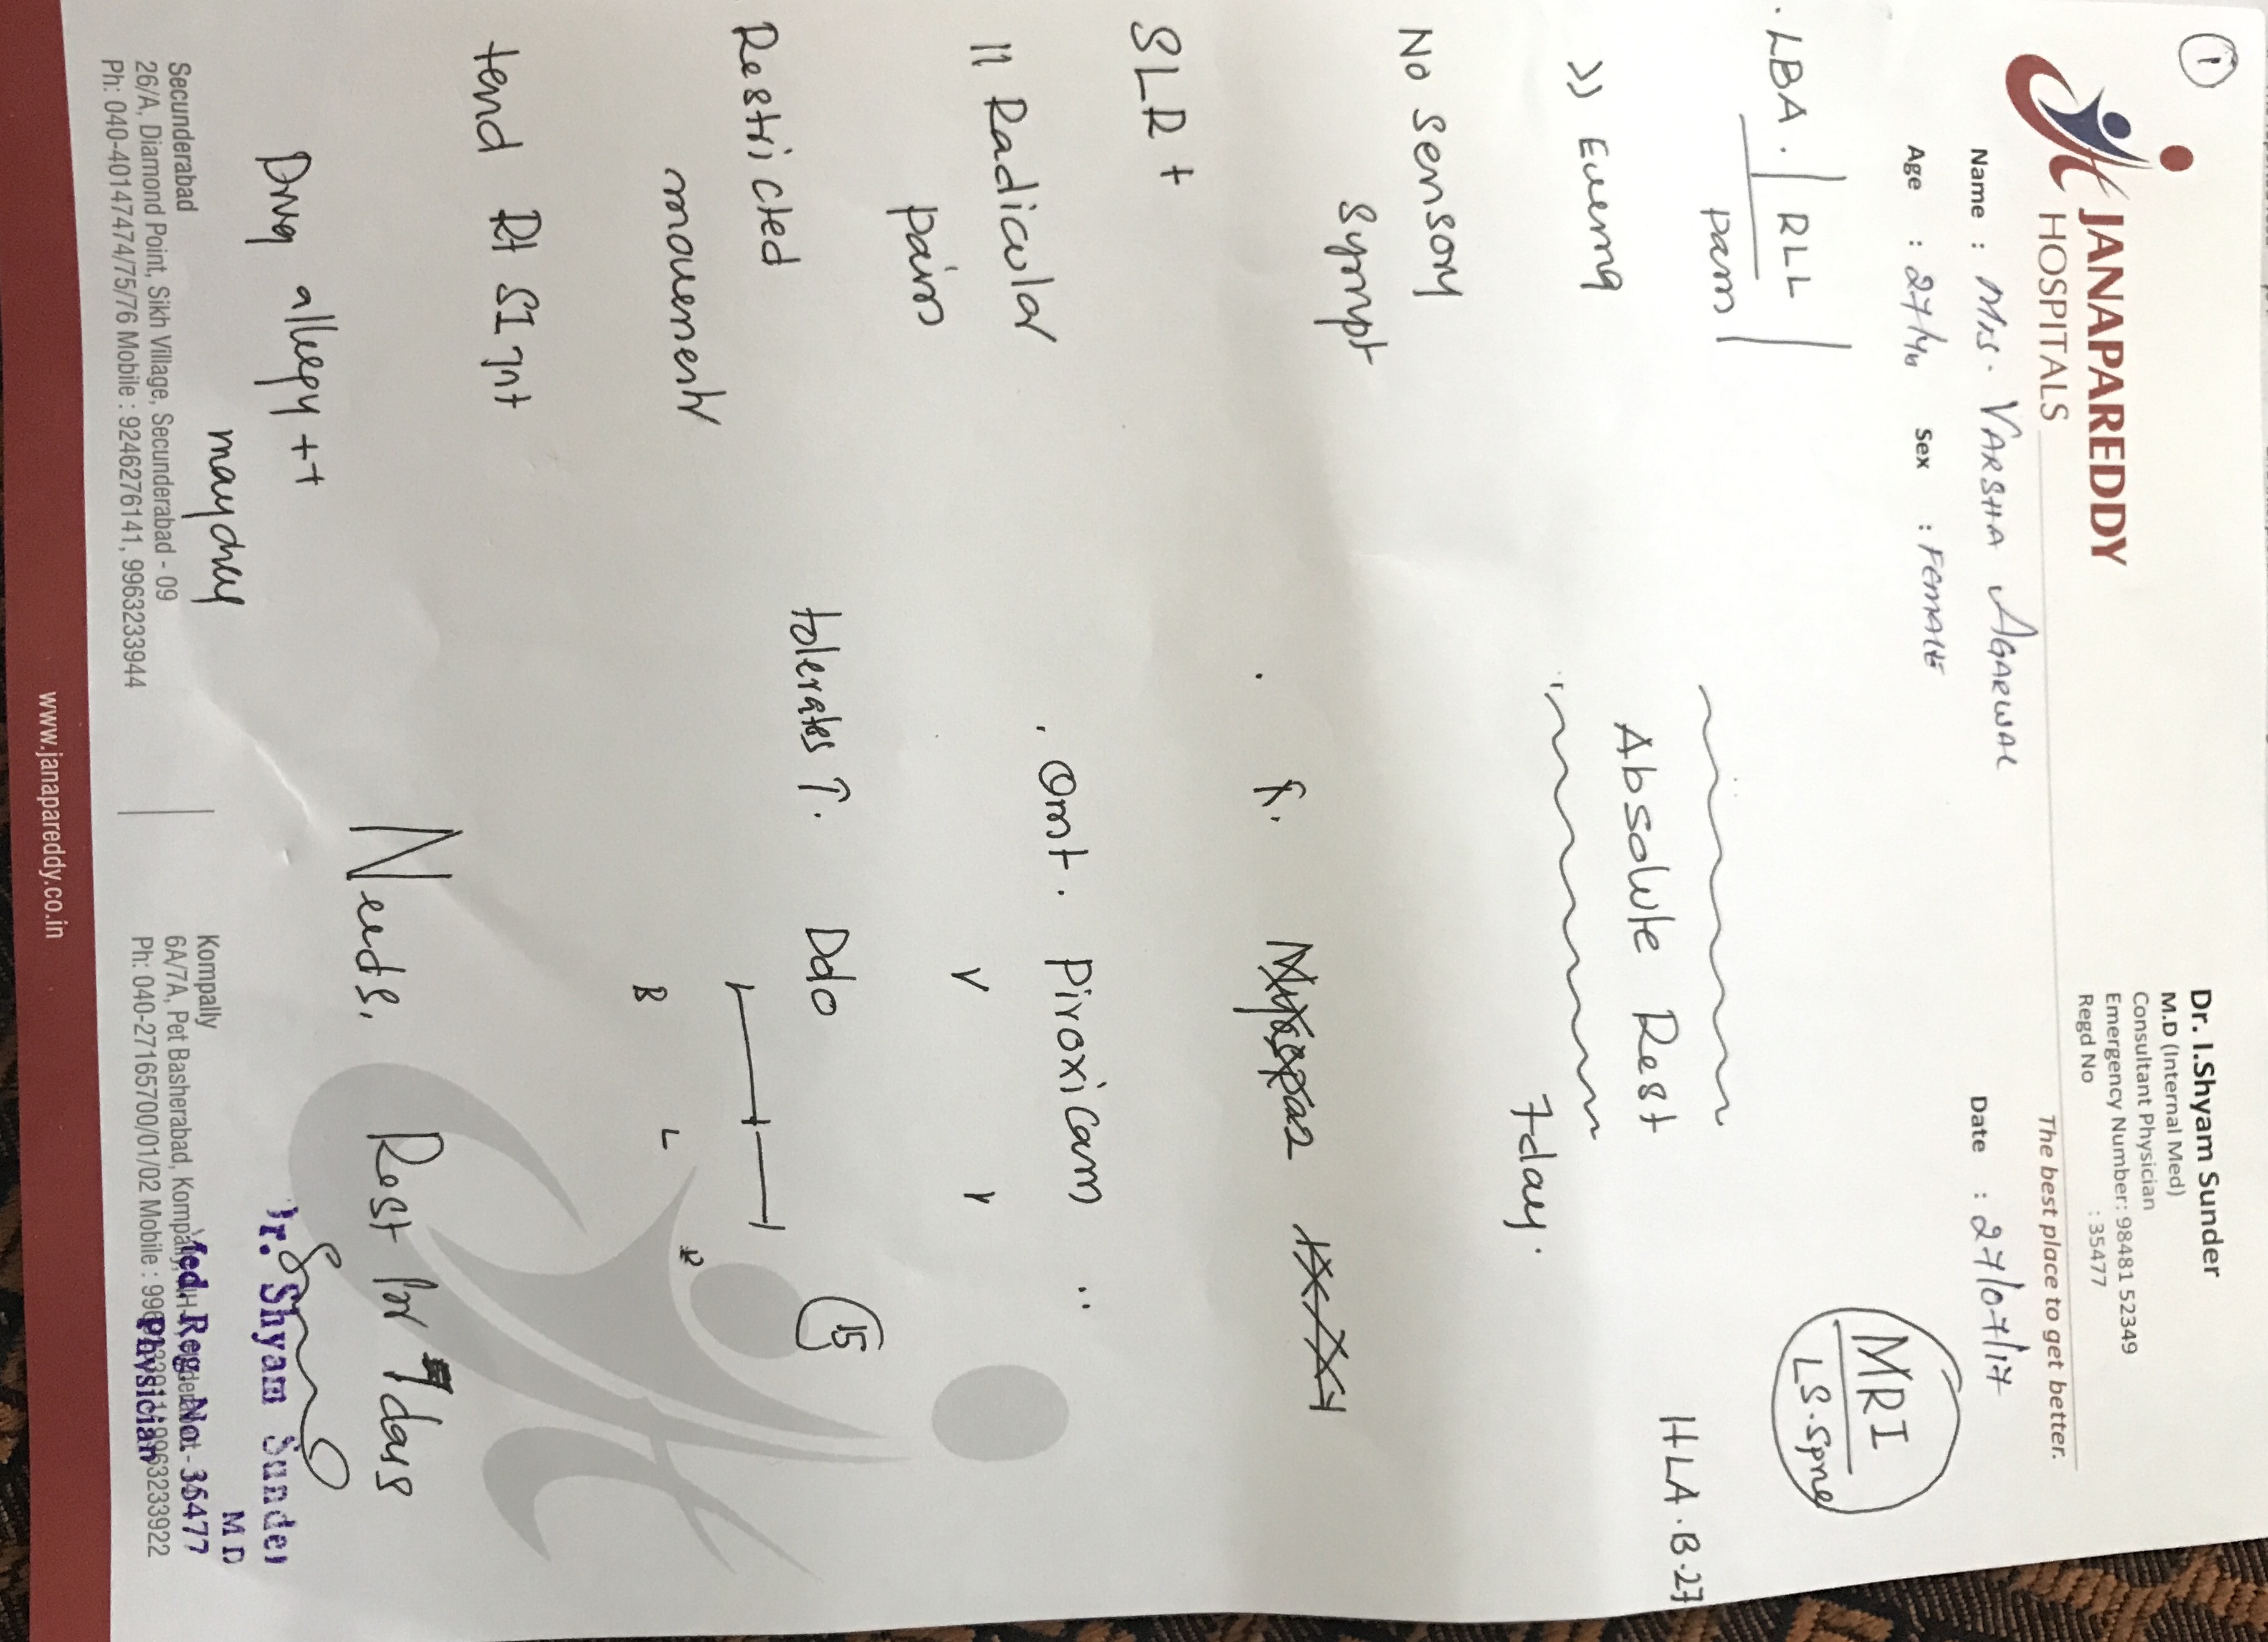 1
JANAPAREDDY
HOSPITALS
Dr. I.Shyam Sunder
M.D (Internal Med)
Consultant Physician
Emergency Number: 98481 52349
Regd No : 35477
The best place to get better.
Name : Mrs. VARSHA AGARWAL
Date : 27/07/17
Age : 27/
Sex : FEMALE
LBA. RLL
pain
MRI
LS.Spine
HLA.B.27
Absolute Rest
7day.
>> Evening
No sensory
sympt
SLR +
11 Radicular
pain
Restricted
movements
tend Rt SI Jnt
Drug allergy ++
Omt. Piroxicam
tolerates ?. Ddo
15
B L
Needs, Rest for 7 days
Dr. Shyam Sunder
M D
Med. Reg. No. - 35477
Physician
Secunderabad
26/A, Diamond Point, Sikh Village, Secunderabad - 09
Ph: 040-40147474/75/76 Mobile : 9246276141, 9963233944
Kompally
6A/7A, Pet Basherabad, Kompally,
Ph: 040-27165700/01/02 Mobile : 9963233922
www.janapareddy.co.in